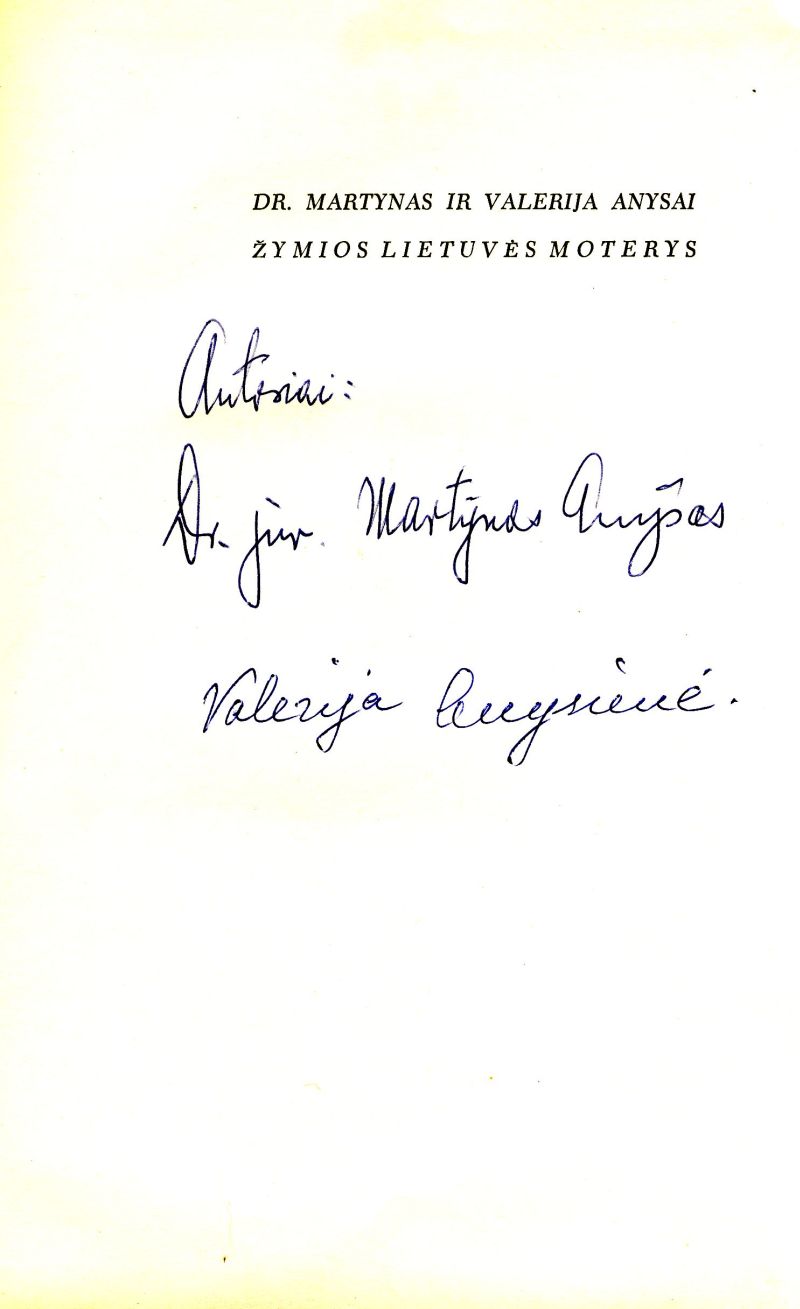 DR. MARTYNAS IR VALERIJA ANYSAI
ŽYMIOS LIETUVĖS MOTERYS
Autoriai:
Dr. jur. Martynas Anysas
Valerija Anysienė.